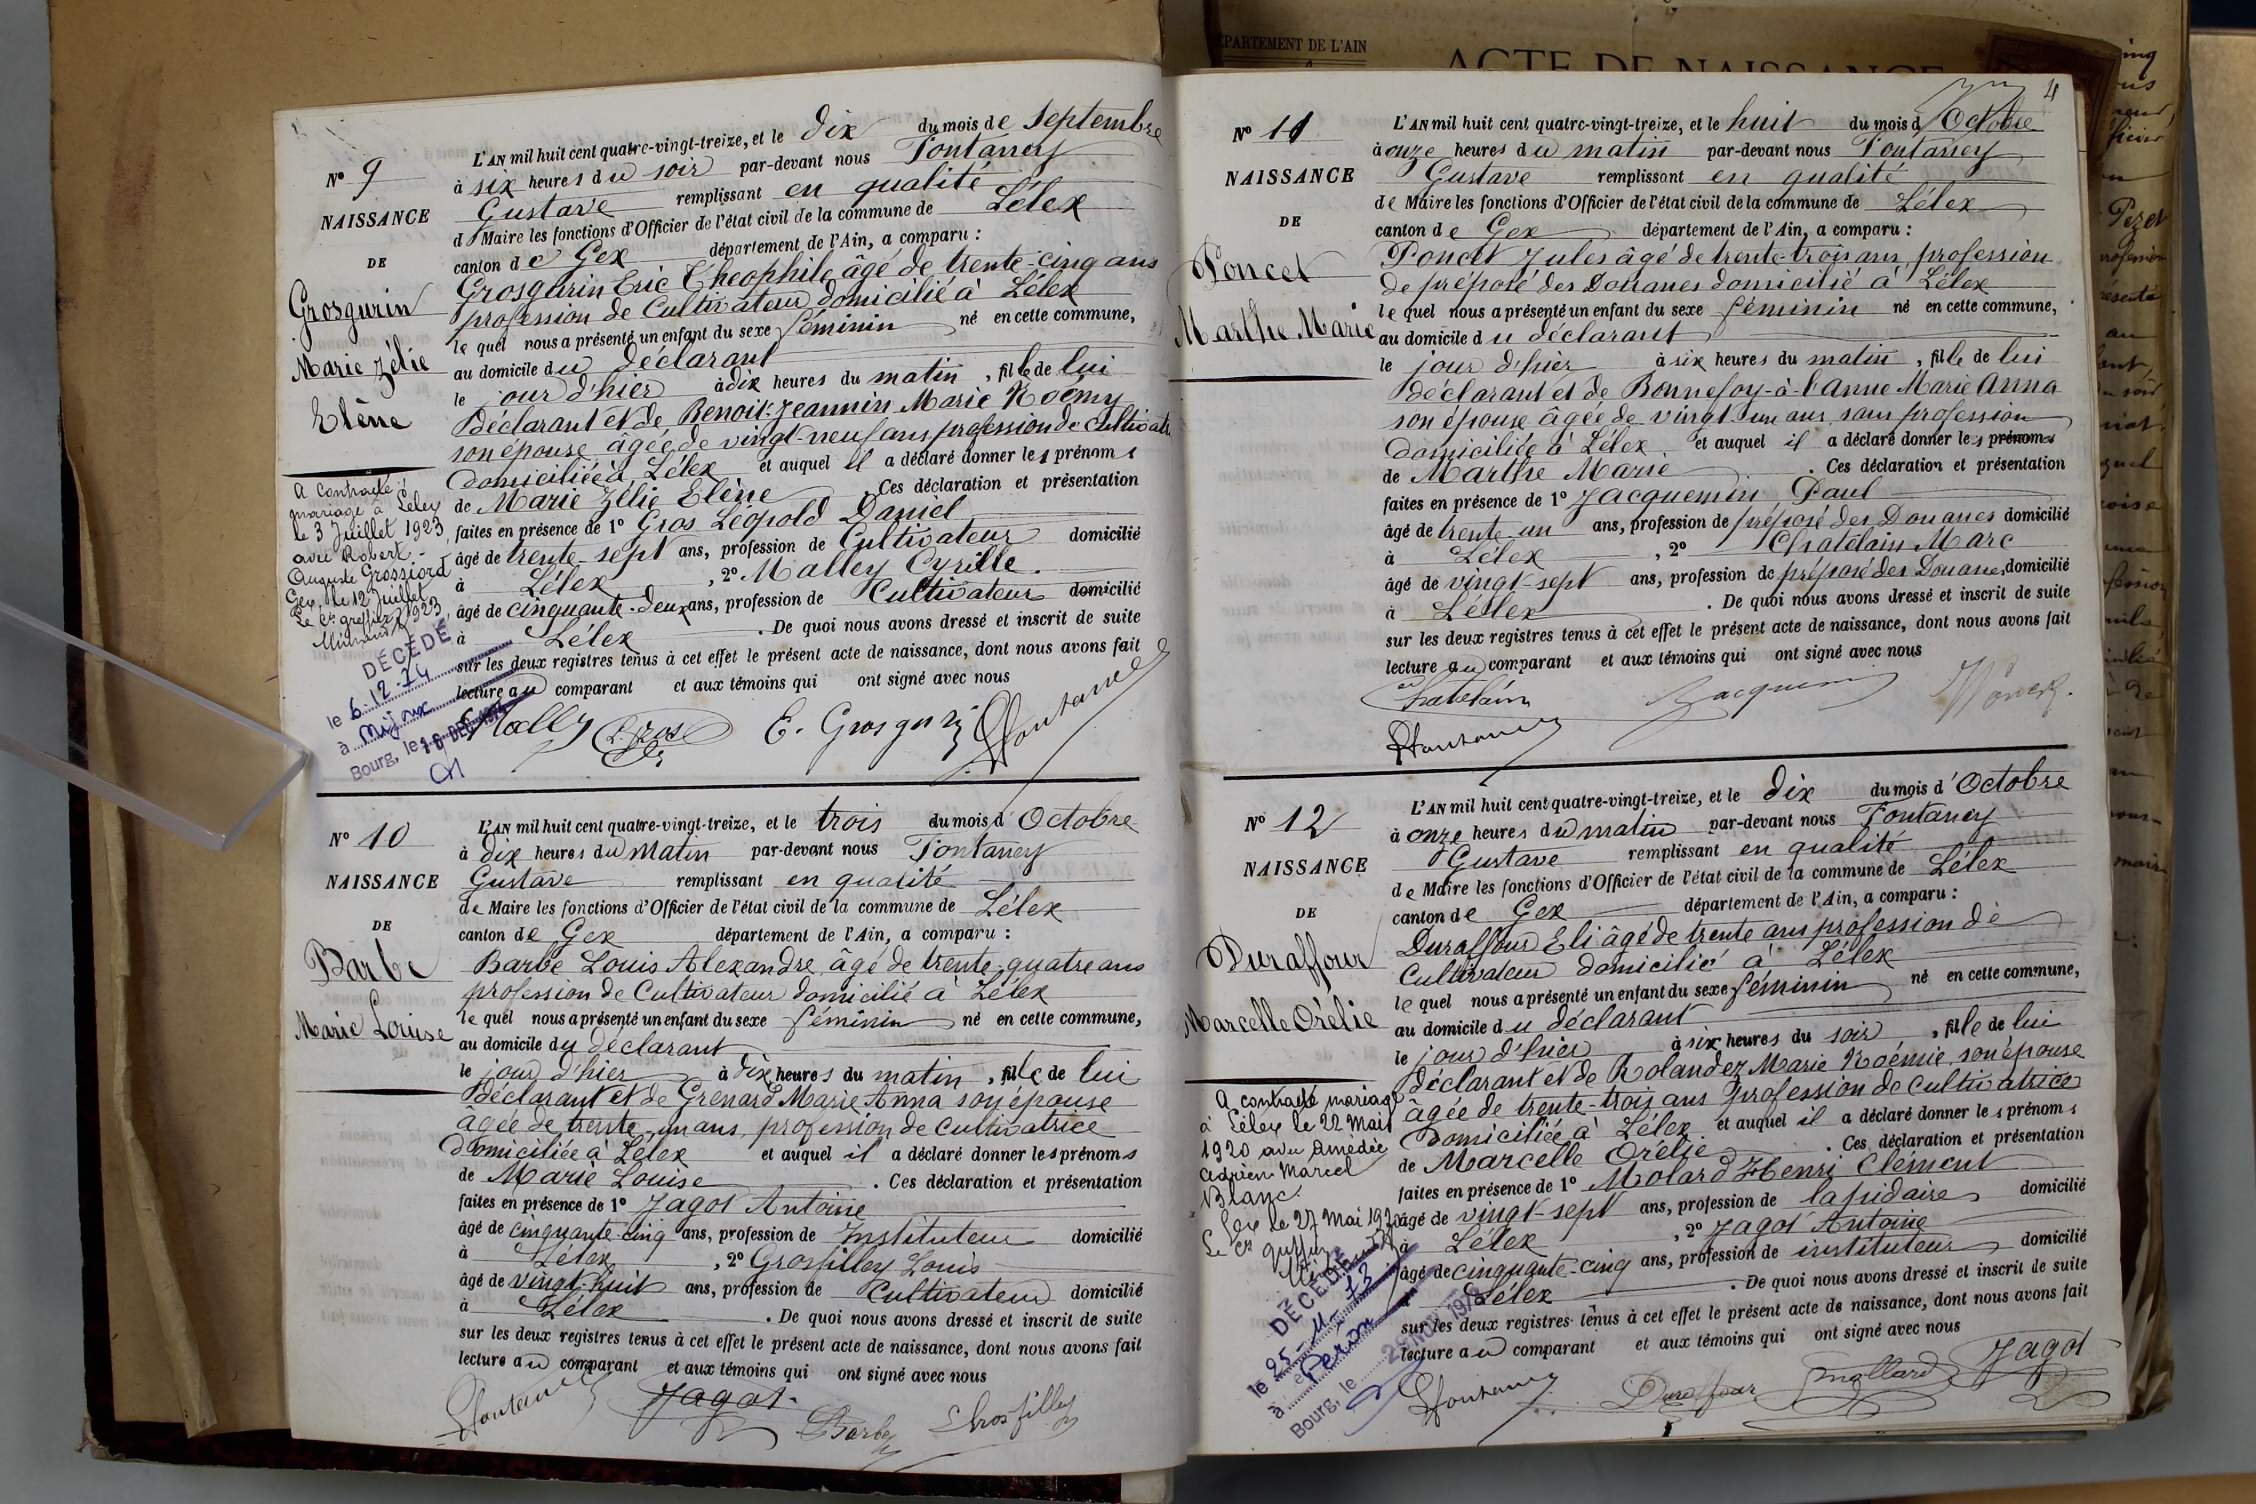 N° 9
NAISSANCE
DE
Grosgurin
Marie Zélie
Elène
A contracté
mariage à Lélex
le 3 Juillet 1923
avec Robert
Auguste Grossiord
Gex, le 12 Juillet
1923
Le Cis greffier
DÉCÉDÉ
le 6.12.74
à Mijoux
Bourg, le 16 DEC 1974
L'AN mil huit cent quatre-vingt-treize, et le dix du mois de Septembre
à six heures du soir par-devant nous Fontanney
Gustave remplissant en qualité
d Maire les fonctions d'Officier de l'état civil de la commune de Lélex
canton de Gex département de l'Ain, a comparu :
Grosgurin Eric Théophile âgé de trente-cinq ans
profession de Cultivateur domicilié à Lélex
lequel nous a présenté un enfant du sexe féminin né en cette commune,
au domicile du déclarant
le jour d'hier à dix heures du matin, fille de lui
déclarant et de Benoit-Jeannin Marie Noémy
son épouse âgée de vingt-neuf ans profession de cultivat
domiciliée à Lélex et auquel il a déclaré donner les prénoms
de Marie Zélie Elène. Ces déclaration et présentation
faites en présence de 1° Gros Léopold Daniel
âgé de trente-sept ans, profession de Cultivateur domicilié
à Lélex, 2° Malley Cyrille.
âgé de cinquante-deux ans, profession de Cultivateur domicilié
à Lélex. De quoi nous avons dressé et inscrit de suite
sur les deux registres tenus à cet effet le présent acte de naissance, dont nous avons fait
lecture au comparant et aux témoins qui ont signé avec nous
Mally L. Gros E. Grosgurin Gfontanney
N° 10
NAISSANCE
DE
Barbe
Marie Louise
L'AN mil huit cent quatre-vingt-treize, et le trois du mois d'Octobre
à dix heures du matin par-devant nous Fontanney
Gustave remplissant en qualité
de Maire les fonctions d'Officier de l'état civil de la commune de Lélex
canton de Gex département de l'Ain, a comparu :
Barbe Louis Alexandre âgé de trente-quatre ans
profession de Cultivateur domicilié à Lélex
lequel nous a présenté un enfant du sexe féminin né en cette commune,
au domicile du déclarant
le jour d'hier à dix heures du matin, fille de lui
déclarant et de Grenard Marie Anna son épouse
âgée de trente-un ans, profession de cultivatrice
domiciliée à Lélex et auquel il a déclaré donner les prénoms
de Marie Louise. Ces déclaration et présentation
faites en présence de 1° Jagot Antoine
âgé de cinquante-cinq ans, profession de Instituteur domicilié
à Lélex, 2° Grosfilley Louis
âgé de vingt-huit ans, profession de Cultivateur domicilié
à Lélex. De quoi nous avons dressé et inscrit de suite
sur les deux registres tenus à cet effet le présent acte de naissance, dont nous avons fait
lecture au comparant et aux témoins qui ont signé avec nous
Gfontanney Jagot. Barbe Grosfilley
DÉPARTEMENT DE L'AIN
ACTE DE NAISSANCE
4
N° 11
NAISSANCE
DE
Poncet
Marthe Marie
L'AN mil huit cent quatre-vingt-treize, et le huit du mois d'Octobre
à onze heures du matin par-devant nous Fontanney
Gustave remplissant en qualité
de Maire les fonctions d'Officier de l'état civil de la commune de Lélex
canton de Gex département de l'Ain, a comparu :
Poncet Jules âgé de trente-trois ans, profession
de préposé des Douanes domicilié à Lélex
lequel nous a présenté un enfant du sexe féminin né en cette commune,
au domicile du déclarant
le jour d'hier à six heures du matin, fille de lui
déclarant et de Bonnefoy-à-l'anne Marie Anna
son épouse âgée de vingt-un ans, sans profession
domiciliée à Lélex et auquel il a déclaré donner les prénoms
de Marthe Marie. Ces déclaration et présentation
faites en présence de 1° Jacquemin Paul
âgé de trente-un ans, profession de préposé des Douanes domicilié
à Lélex, 2° Chatelain Marc
âgé de vingt-sept ans, profession de préposé des Douanes, domicilié
à Lélex. De quoi nous avons dressé et inscrit de suite
sur les deux registres tenus à cet effet le présent acte de naissance, dont nous avons fait
lecture au comparant et aux témoins qui ont signé avec nous
Chatelain Jacquemin Poncet
Gfontanney
N° 12
NAISSANCE
DE
Duraffour
Marcelle Orélie
A contracté mariage
à Lélex le 22 Mai
1920 avec Amédée
Adrien Marcel
Blanc.
Gex le 27 Mai 1920
Le Cis greffier
DÉCÉDÉ
le 25-11-73
à Péron
Bourg, le 28 NOV 1973
L'AN mil huit cent quatre-vingt-treize, et le dix du mois d'Octobre
à onze heures du matin par-devant nous Fontanney
Gustave remplissant en qualité
de Maire les fonctions d'Officier de l'état civil de la commune de Lélex
canton de Gex département de l'Ain, a comparu :
Duraffour Eli âgé de trente ans profession de
Cultivateur domicilié à Lélex
lequel nous a présenté un enfant du sexe féminin né en cette commune,
au domicile du déclarant
le jour d'hier à six heures du soir, fille de lui
déclarant et de Rolandez Marie Noémie son épouse
âgée de trente-trois ans profession de cultivatrice
domiciliée à Lélex et auquel il a déclaré donner les prénoms
de Marcelle Orélie. Ces déclaration et présentation
faites en présence de 1° Molard Henri Clément
âgé de vingt-sept ans, profession de lapidaire domicilié
à Lélex, 2° Jagot Antoine
âgé de cinquante-cinq ans, profession de instituteur domicilié
Lélex. De quoi nous avons dressé et inscrit de suite
sur les deux registres tenus à cet effet le présent acte de naissance, dont nous avons fait
lecture au comparant et aux témoins qui ont signé avec nous
Gfontanney Duraffour Mollard Jagot